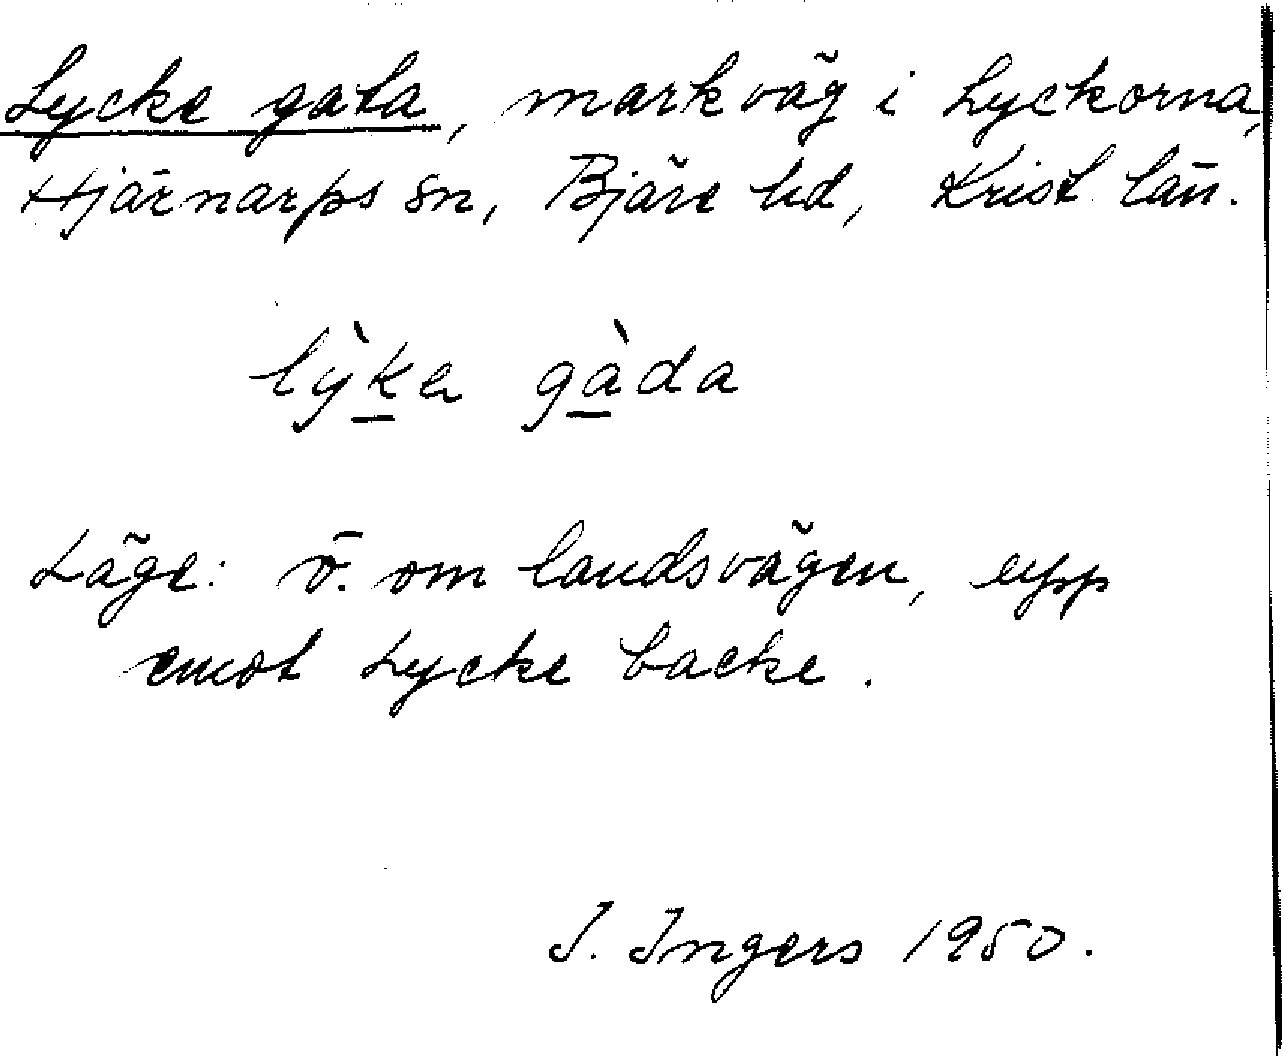 Lycke gata, markväg i Lyckorna,
Hjärnarps sn, Bjäre hd, Krist. län.
lỳka gàda
Läge: ö. om landsvägen, upp
emot Lycke backe.
I. Ingers 1950.